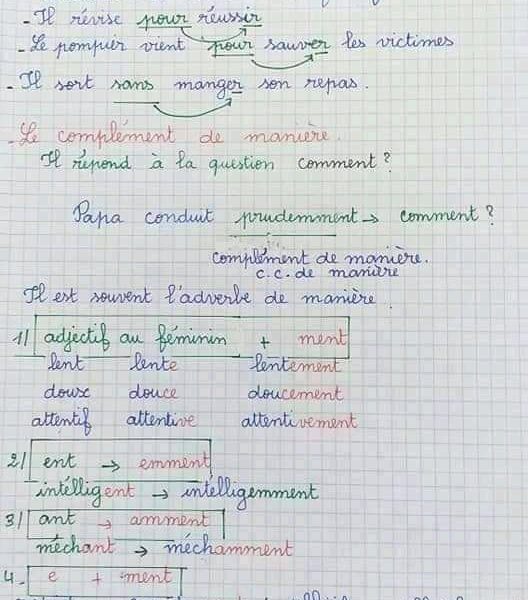 - Il révise pour réussir
- Le pompier vient pour sauver les victimes
- Il sort sans manger son repas.
- Le complément de manière.
Il répond à la question comment ?
Papa conduit prudemment → comment ?
complément de manière.
c.c. de manière
Il est souvent l'adverbe de manière
1/ adjectif au féminin + ment
lent lente lentement
doux douce doucement
attentif attentive attentivement
2/ ent → emment
intélligent → intélligemment
3/ ant → amment
méchant → méchamment
4- e + ment